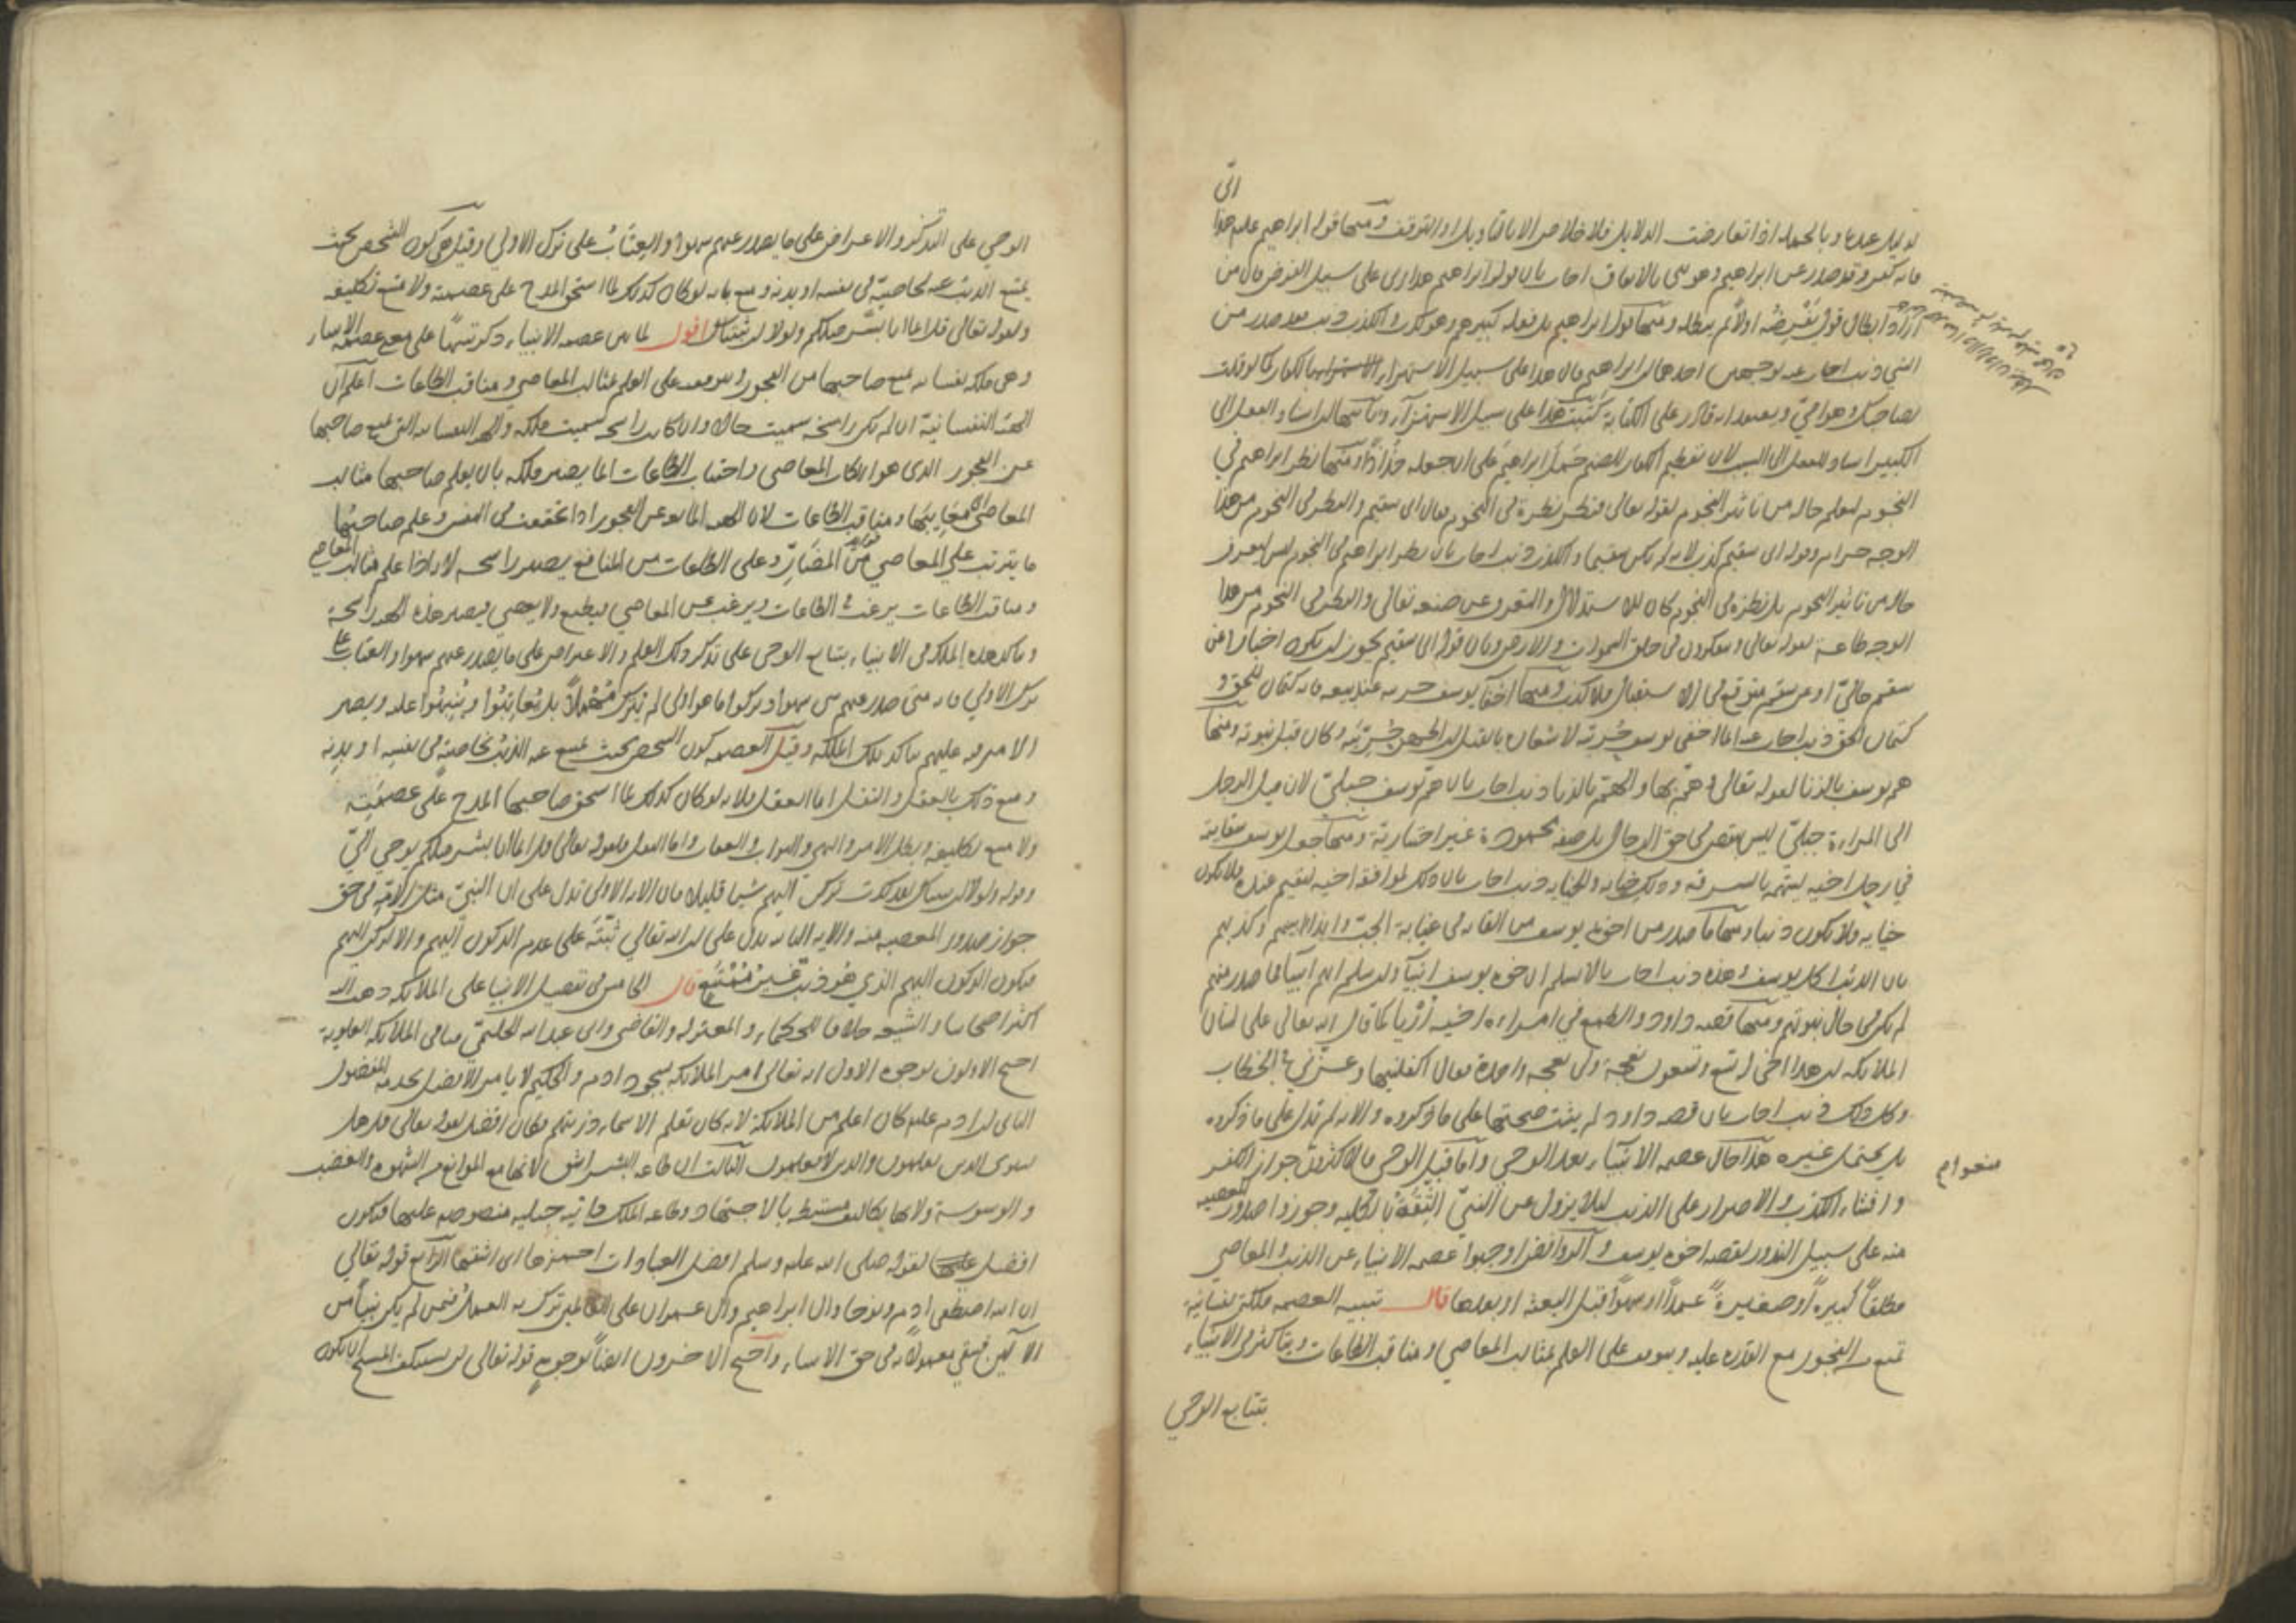 لو نزل عدما وبالجملة اذا تعارضت الدلايل فلا خلاص الا بالتاويل او التوقف ومنها قول ابراهيم عليه هذا
فانه كفر وقد صدر عن ابراهيم وهو نبي بالاتفاق اجاب بان قول ابراهيم هذا ربي على سبيل الفرض فان من
اراد ابطال قول يفرضه اولا ثم يبطله ومنها قول ابراهيم بل فعله كبيرهم وهو كذب والكذب ذنب فقد صدر من
النبي ذنب اجاب عنه بوجهين احدهما ان ابراهيم قال هذا على سبيل الاستهزاء بالكفار كما لو قلت
لصاحبك وهو امي ويعتقد انه قادر على الكتابة كتبت هذا على سبيل الاستهزاء وثانيهما ان اسناد الفعل الى
الكبير اسناد للفعل الى السبب لان تعظيم الكفار للصنم حمل ابراهيم على ان جعله جذاذا ومنها نظر ابراهيم في
النجوم ليعلم حاله من تاثير النجوم لقوله تعالى فنظر نظرة في النجوم فقال اني سقيم والنظر في النجوم من هذا
الوجه حرام وقوله اني سقيم كذب لانه لم يكن سقيما والكذب ذنب اجاب بان نظر ابراهيم في النجوم ليس ليعرف
حاله من تاثير النجوم بل نظره في النجوم كان للاستدلال والتعرف عن صنعه تعالى والنظر في النجوم من هذا
الوجه طاعة لقوله تعالى ويتفكرون في خلق السموات والارض وبان قوله اني سقيم يجوز ان يكون اخبارا عن
سقم حالي او عن سقم متوقع في الاستقبال فلا كذب ومنها اخفا يوسف حريته عند بيعه فانه كتمان للحق و
كتمان الحق ذنب اجاب عنه انما اخفى يوسف حريته لاشعاره بالقتل ان اظهر حريته وكان قبل نبوته ومنها
هم يوسف بالزنا لقوله تعالى وهم بها والهم بالزنا ذنب اجاب بان هم يوسف جبلي لان ميل الرجل
الى المراءة جبلي ليس بنقص في حق الرجال بل صفة محمودة غير اختيارية ومنها جعل يوسف سقايته
في رحل اخيه ليتهم بالسرقة وذلك خيانة والخيانة ذنب اجاب بان ذلك لموافقة اخيه ليقيم عنده فلا يكون
خيانة ولا يكون ذنبا ومنها ما صدر من اخوة يوسف من القائه في غيابة الجب وايذائه ابيهم وكذبهم
بان الذئب اكل يوسف وهذه ذنب اجاب بانا لا نسلم ان اخوة يوسف انبيا وان سلم انهم انبيا فما صدر منهم
لم يكن في حال نبوتهم ومنها قصة داود والطمع في امراءة اخيه اوريا كما قال الله تعالى على لسان
الملائكة ان هذا اخي له تسع وتسعون نعجة ولي نعجة واحدة فقال اكفلنيها وعزني في الخطاب
وكل ذلك ذنب اجاب بان قصة داود لم يثبت صحتها على ما ذكروه والاية لم تدل على ما ذكروه
بل يحتمل غيره هذا حال عصمة الانبياء بعد الوحي واما قبل الوحي فالاكثرون جواز الكفر
منعوا م
وافشاء الكذب والاصرار على الذنب ليلا يزول عن النبي الثقة بالكلية وجوزوا صدور المعصية
منه على سبيل الندور لقصة اخوة يوسف والروافض اوجبوا عصمة الانبياء عن الذنب والمعاصي
مطلقا كبيرة او صغيرة عمدا او سهوا قبل البعثة او بعدها قال تنبيه العصمة ملكة نفسانية
تمنع من الفجور مع القدرة عليه ويتوقف على العلم بمثالب المعاصي ومناقب الطاعات ويتاكد في الانبياء
بتتابع الوحي
الوحي على التذكر والاعتراض على ما يصدر عنهم سهوا والعتاب على ترك الاولى وقيل هي كون الشخص بحيث
يمتنع الذنب عنه لخاصية في نفسه او بدنه ومنع بانه لو كان كذلك لما استحق المدح على عصمته ولا متنع تكليفه
ولقوله تعالى قل انما انا بشر مثلكم ولولا ان ثبتناك اقول لما بين عصمة الانبياء ذكر تنبيها على معنى عصمة الانبياء
وهي ملكة نفسانية تمنع صاحبها من الفجور ويتوقف على العلم بمثالب المعاصي ومناقب الطاعات اعلم ان
الهيئة النفسانية ان لم يكن راسخة سميت حالا وان كانت راسخة سميت ملكة والهيئة النفسانية التي تمنع صاحبها
عن الفجور الذي هو ارتكاب المعاصي واجتناب الطاعات انما يصير ملكة بان يعلم صاحبها مثالب
المعاصي اي معايبها ومناقب الطاعات لان الهيئة المانعة عن الفجور اذا تحققت في النفس وعلم صاحبها
ما يترتب على المعاصي من المضار وعلى الطاعات من المنافع يصير راسخة لانه اذا علم مثالب المعاصي
ومناقب الطاعات يرغب في الطاعات ويرغب عن المعاصي فيطيع ولا يعصي فيصير هذه الهيئة راسخة
ويتاكد هذه الملكة في الانبياء بتتابع الوحي على تذكر ذلك العلم والاعتراض على ما يصدر عنهم سهوا والعتاب على
ترك الاولى فانه متى صدر عنهم شي سهوا وتركوا ما هو اولى لم يترك مهملا بل يعاتبوا وينبهوا عليه ويضيق
الامر فيه عليهم يتاكد تلك الملكة وقيل العصمة كون الشخص بحيث يمتنع عنه الذنب بخاصية في نفسه او بدنه
ومنع ذلك بالعقل والنقل اما العقل فلانه لو كان كذلك لما استحق صاحبها المدح على عصمته
ولا متنع تكليفه وبطل الامر والنهي والثواب والعقاب واما النقل فلقوله تعالى قل انما انا بشر مثلكم يوحى الي
وقوله ولولا ان ثبتناك لقد كدت تركن اليهم شيا قليلا فان الاية الاولى تدل على ان النبي مثل الامة في حق
جواز صدور المعصية منه والاية الثانية تدل على ان الله تعالى ثبته على عدم الركون اليهم والا لركن اليهم
فيكون الركون اليهم الذي هو ذنب غير ممتنع قال الخامس في تفضيل الانبيا على الملائكة ذهب اليه
اكثر اصحابنا والشيعة خلافا للحكماء والمعتزلة والقاضي وابي عبد الله الحليمي منا في الملائكة العلوية
احتج الاولون بوجوه الاول انه تعالى امر الملائكة بسجود ادم والحكيم لا يامر الافضل بخدمة المفضول
الثاني ان ادم عليه كان اعلم من الملائكة لانه كان يعلم الاسماء دونهم فكان افضل لقوله تعالى قل هل
يستوي الذين يعلمون والذين لا يعلمون الثالث ان طاعة البشر اشق لانها مع الموانع من الشهوة والغضب
والوسوسة ولانها تكاليف مستنبطة بالاجتهاد وطاعة الملك ذاتية جبلية منصوصة عليها فيكون
افضل لقوله صلى الله عليه وسلم افضل العبادات احمزها اي اشقها الرابع قوله تعالى
ان الله اصطفى ادم ونوحا وال ابراهيم وال عمران على العالمين ترك به العمل فيمن لم يكن نبيا من
الالين فبقي معمولا به في حق الانبياء واحتج الاخرون ايضا بوجوه قوله تعالى لن يستنكف المسيح ان يكون